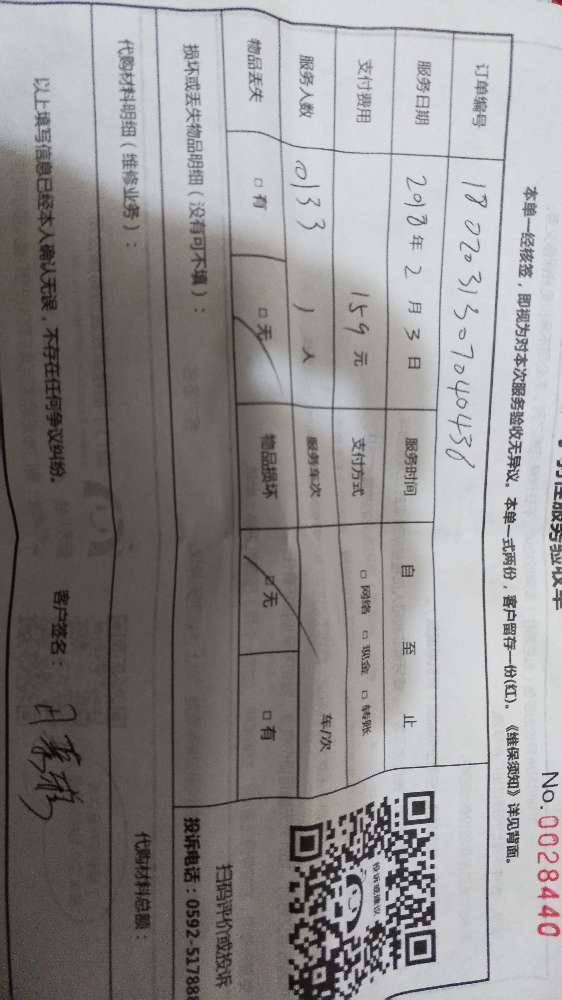 服务验收单
No.0028440
本单一经核签，即视为对本次服务验收无异议。本单一式两份，客户留存一份(红)。《维保须知》详见背面。
订单编号 1802031307040438
服务日期 2018年2月3日 服务时间 自 至 止
支付费用 159元 支付方式 □网络 □现金 □转账
服务人数 0133 1人 服务车次 车/次
物品丢失 □有 □无 物品损坏 □无 □有
损坏或丢失物品明细（没有可不填）：
投诉或建议
扫码评价或投诉
投诉电话：0592-51788
代购材料明细（维修业务）：
代购材料总额：
以上填写信息已经本人确认无误，不存在任何争议纠纷。
客户签名：